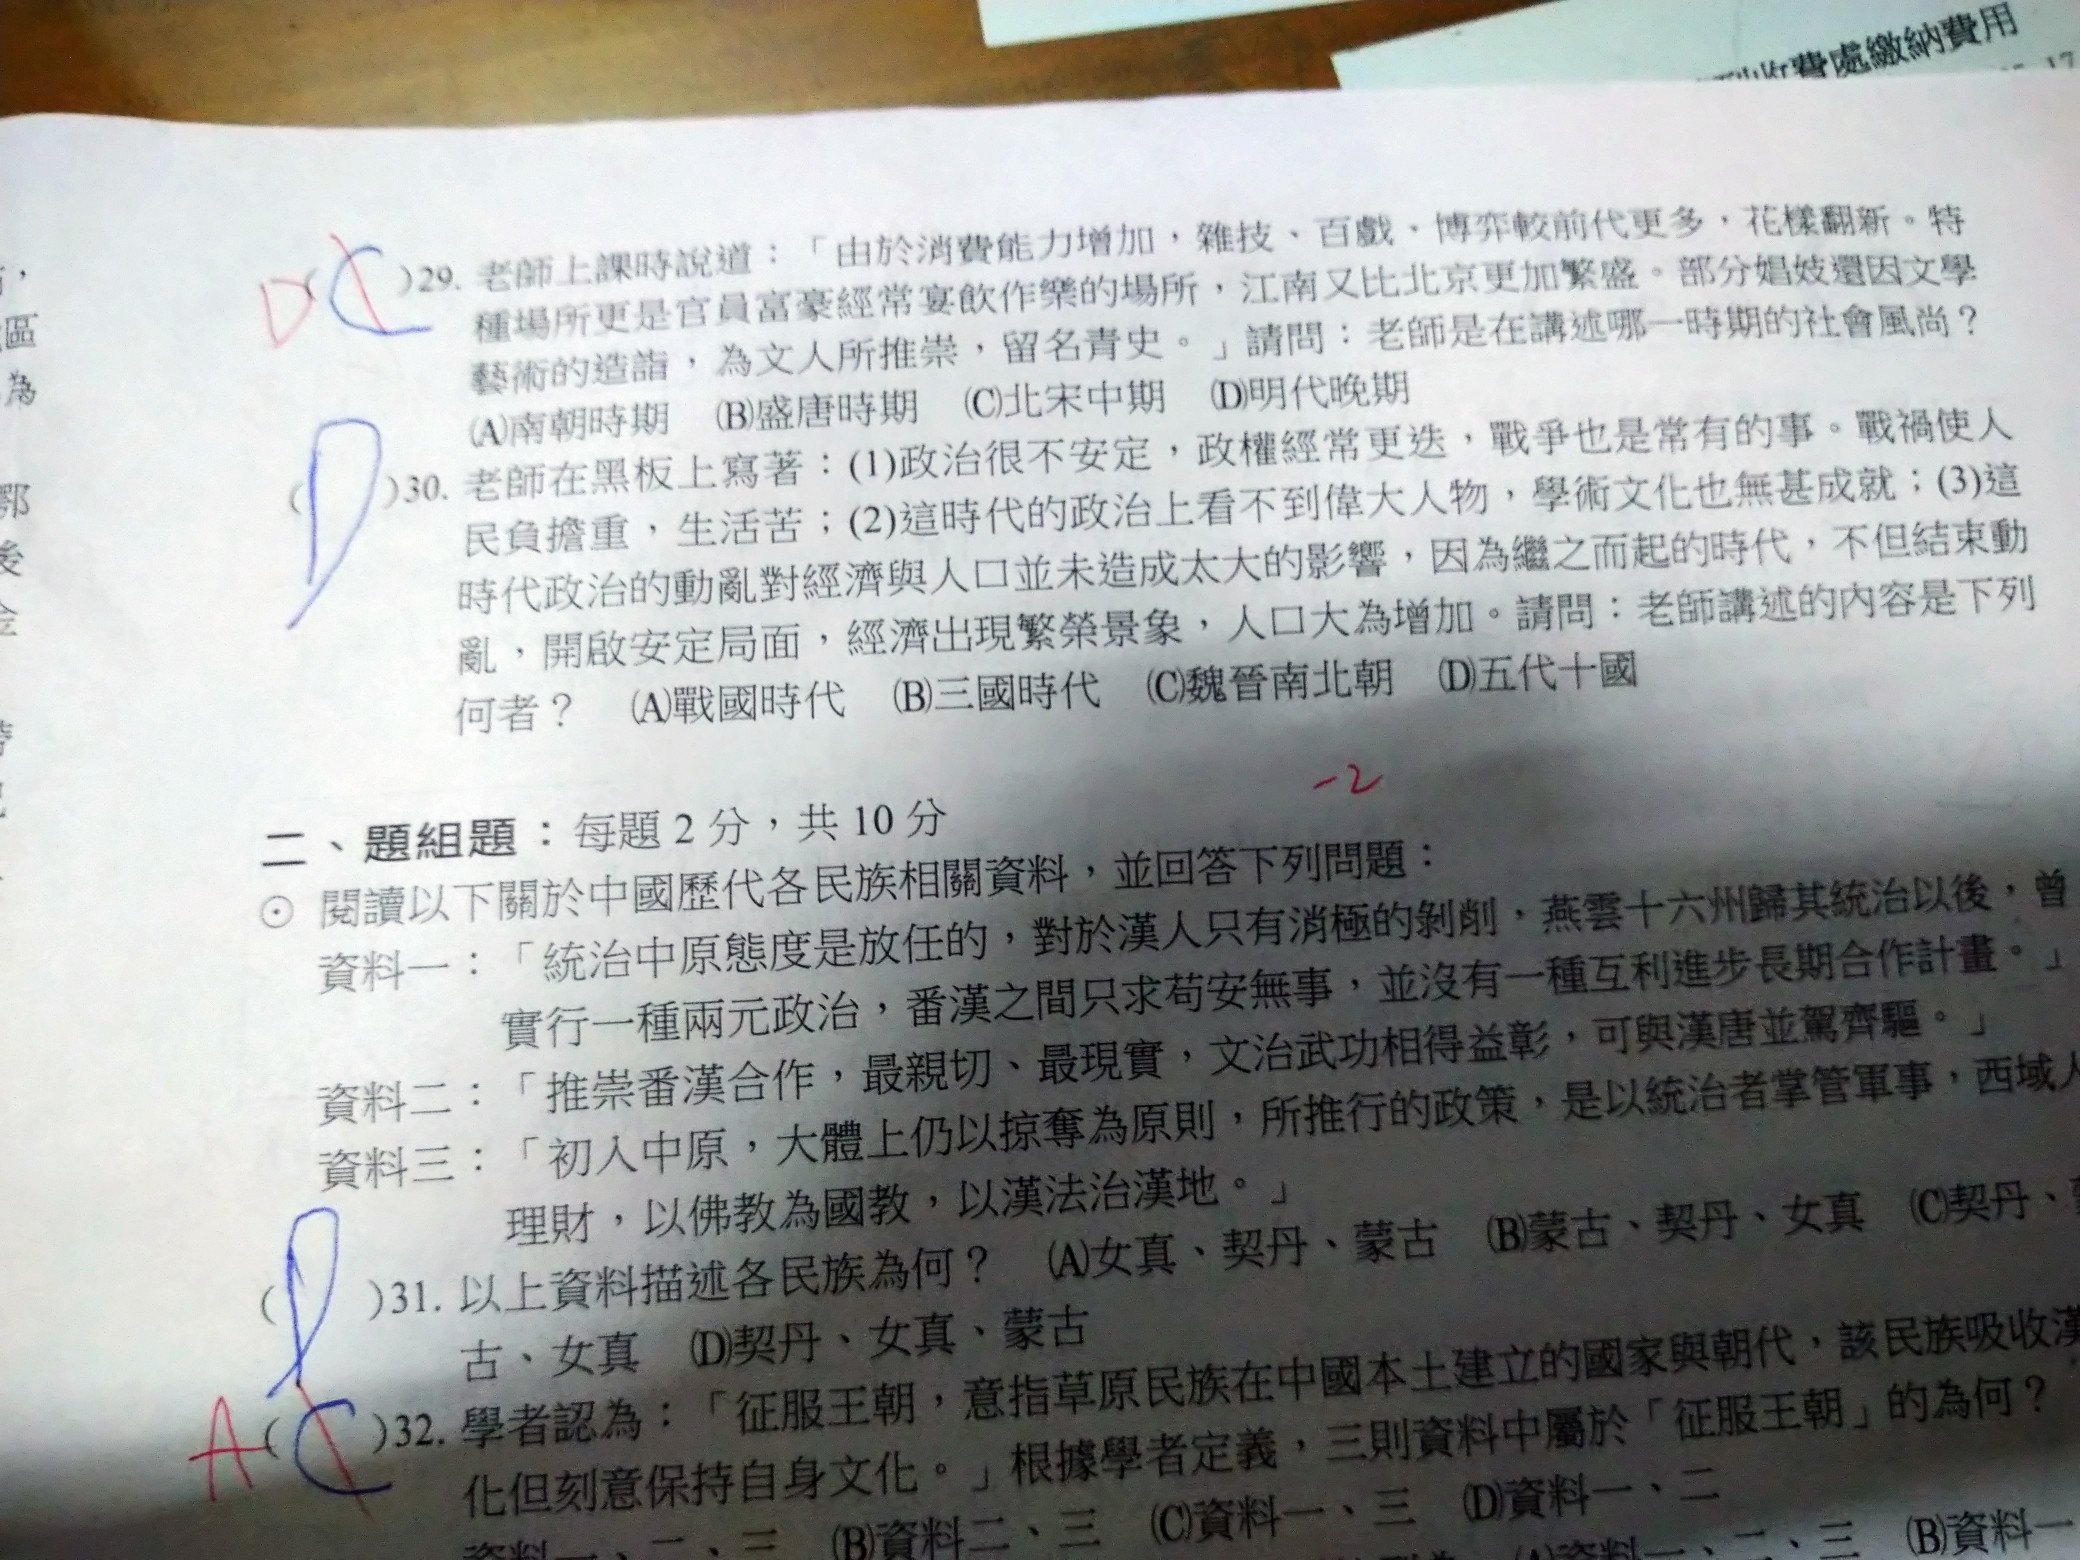 收費處繳納費用
區
為
鄂
後
D( C )29. 老師上課時說道：「由於消費能力增加，雜技、百戲、博弈較前代更多，花樣翻新。特
種場所更是官員富豪經常宴飲作樂的場所，江南又比北京更加繁盛。部分娼妓還因文學
藝術的造詣，為文人所推崇，留名青史。」請問：老師是在講述哪一時期的社會風尚？
(A)南朝時期 (B)盛唐時期 (C)北宋中期 (D)明代晚期
( D )30. 老師在黑板上寫著：(1)政治很不安定，政權經常更迭，戰爭也是常有的事。戰禍使人
民負擔重，生活苦；(2)這時代的政治上看不到偉大人物，學術文化也無甚成就；(3)這
時代政治的動亂對經濟與人口並未造成太大的影響，因為繼之而起的時代，不但結束動
亂，開啟安定局面，經濟出現繁榮景象，人口大為增加。請問：老師講述的內容是下列
何者？ (A)戰國時代 (B)三國時代 (C)魏晉南北朝 (D)五代十國
-2
二、題組題：每題 2 分，共 10 分
⊙ 閱讀以下關於中國歷代各民族相關資料，並回答下列問題：
資料一：「統治中原態度是放任的，對於漢人只有消極的剝削，燕雲十六州歸其統治以後，曾
實行一種兩元政治，番漢之間只求苟安無事，並沒有一種互利進步長期合作計畫。」
資料二：「推崇番漢合作，最親切、最現實，文治武功相得益彰，可與漢唐並駕齊驅。」
資料三：「初入中原，大體上仍以掠奪為原則，所推行的政策，是以統治者掌管軍事，西域人
理財，以佛教為國教，以漢法治漢地。」
( D )31. 以上資料描述各民族為何？ (A)女真、契丹、蒙古 (B)蒙古、契丹、女真 (C)契丹、
古、女真 (D)契丹、女真、蒙古
A( C )32. 學者認為：「征服王朝，意指草原民族在中國本土建立的國家與朝代，該民族吸收漢
化但刻意保持自身文化。」根據學者定義，三則資料中屬於「征服王朝」的為何？
資料一、二、三 (B)資料二、三 (C)資料一、三 (D)資料一、二
(A)資料一、二、三 (B)資料一